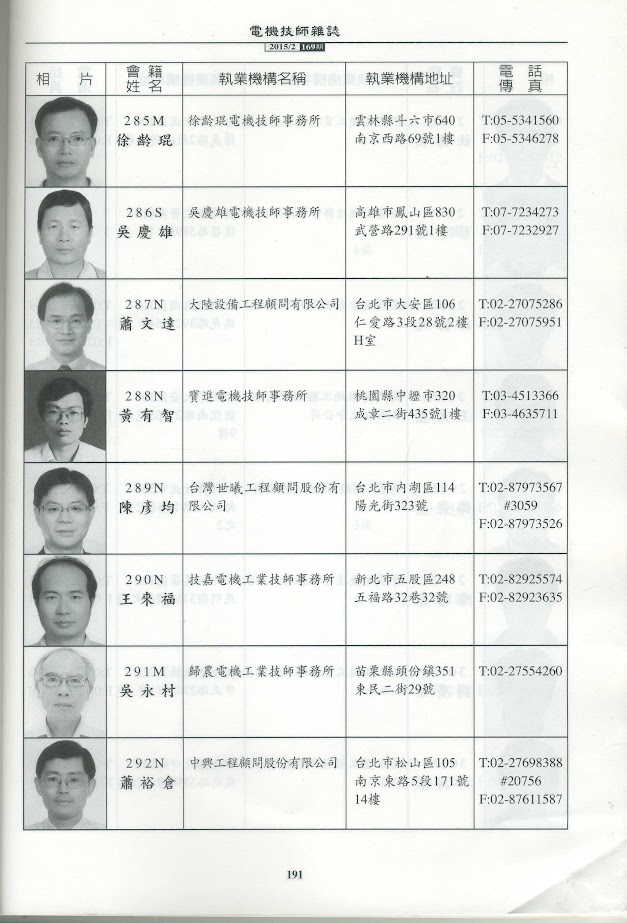 電機技師雜誌
2015/2 169期
相 片
會 籍
姓 名
執業機構名稱
執業機構地址
電 話
傳 真
285M
徐齡琨
徐齡琨電機技師事務所
雲林縣斗六市640
南京西路69號1樓
T:05-5341560
F:05-5346278
286S
吳慶雄
吳慶雄電機技師事務所
高雄市鳳山區830
武營路291號1樓
T:07-7234273
F:07-7232927
287N
蕭文達
大陸設備工程顧問有限公司
台北市大安區106
仁愛路3段28號2樓
H室
T:02-27075286
F:02-27075951
288N
黃有智
寶進電機技師事務所
桃園縣中壢市320
成章二街435號1樓
T:03-4513366
F:03-4635711
289N
陳彥均
台灣世曦工程顧問股份有
限公司
台北市內湖區114
陽光街323號
T:02-87973567
#3059
F:02-87973526
290N
王來福
技嘉電機工業技師事務所
新北市五股區248
五福路32巷32號
T:02-82925574
F:02-82923635
291M
吳永村
歸農電機工業技師事務所
苗栗縣頭份鎮351
東民二街29號
T:02-27554260
292N
蕭裕倉
中興工程顧問股份有限公司
台北市松山區105
南京東路5段171號
14樓
T:02-27698388
#20756
F:02-87611587
191